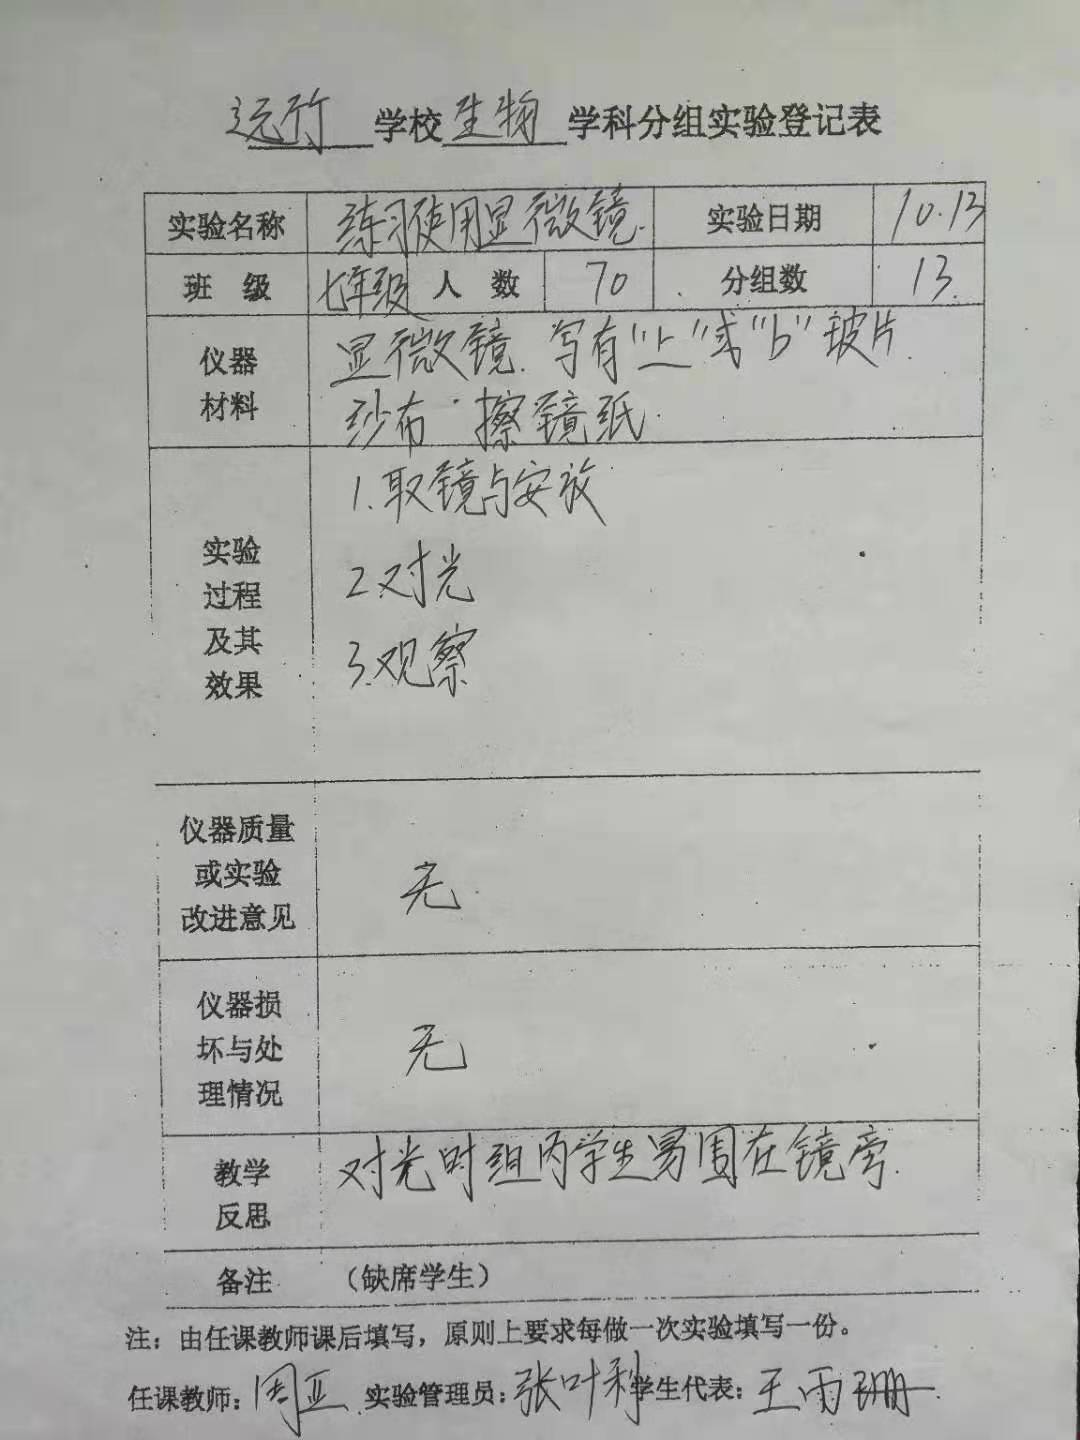 远行 学校 生物 学科分组实验登记表
实验名称 练习使用显微镜. 实验日期 10.13
班 级 七年级 人 数 70 分组数 13.
仪器 显微镜. 写有“上”或“b”玻片.
材料 纱布 擦镜纸.
1.取镜与安放
实验
过程 2.对光
及其
效果 3.观察
仪器质量
或实验 无
改进意见
仪器损
坏与处 无
理情况
教学 对光时组内学生易围在镜旁.
反思
备注 （缺席学生）
注：由任课教师课后填写，原则上要求每做一次实验填写一份。
任课教师：周亚 实验管理员：张叶利 学生代表：王雨珊